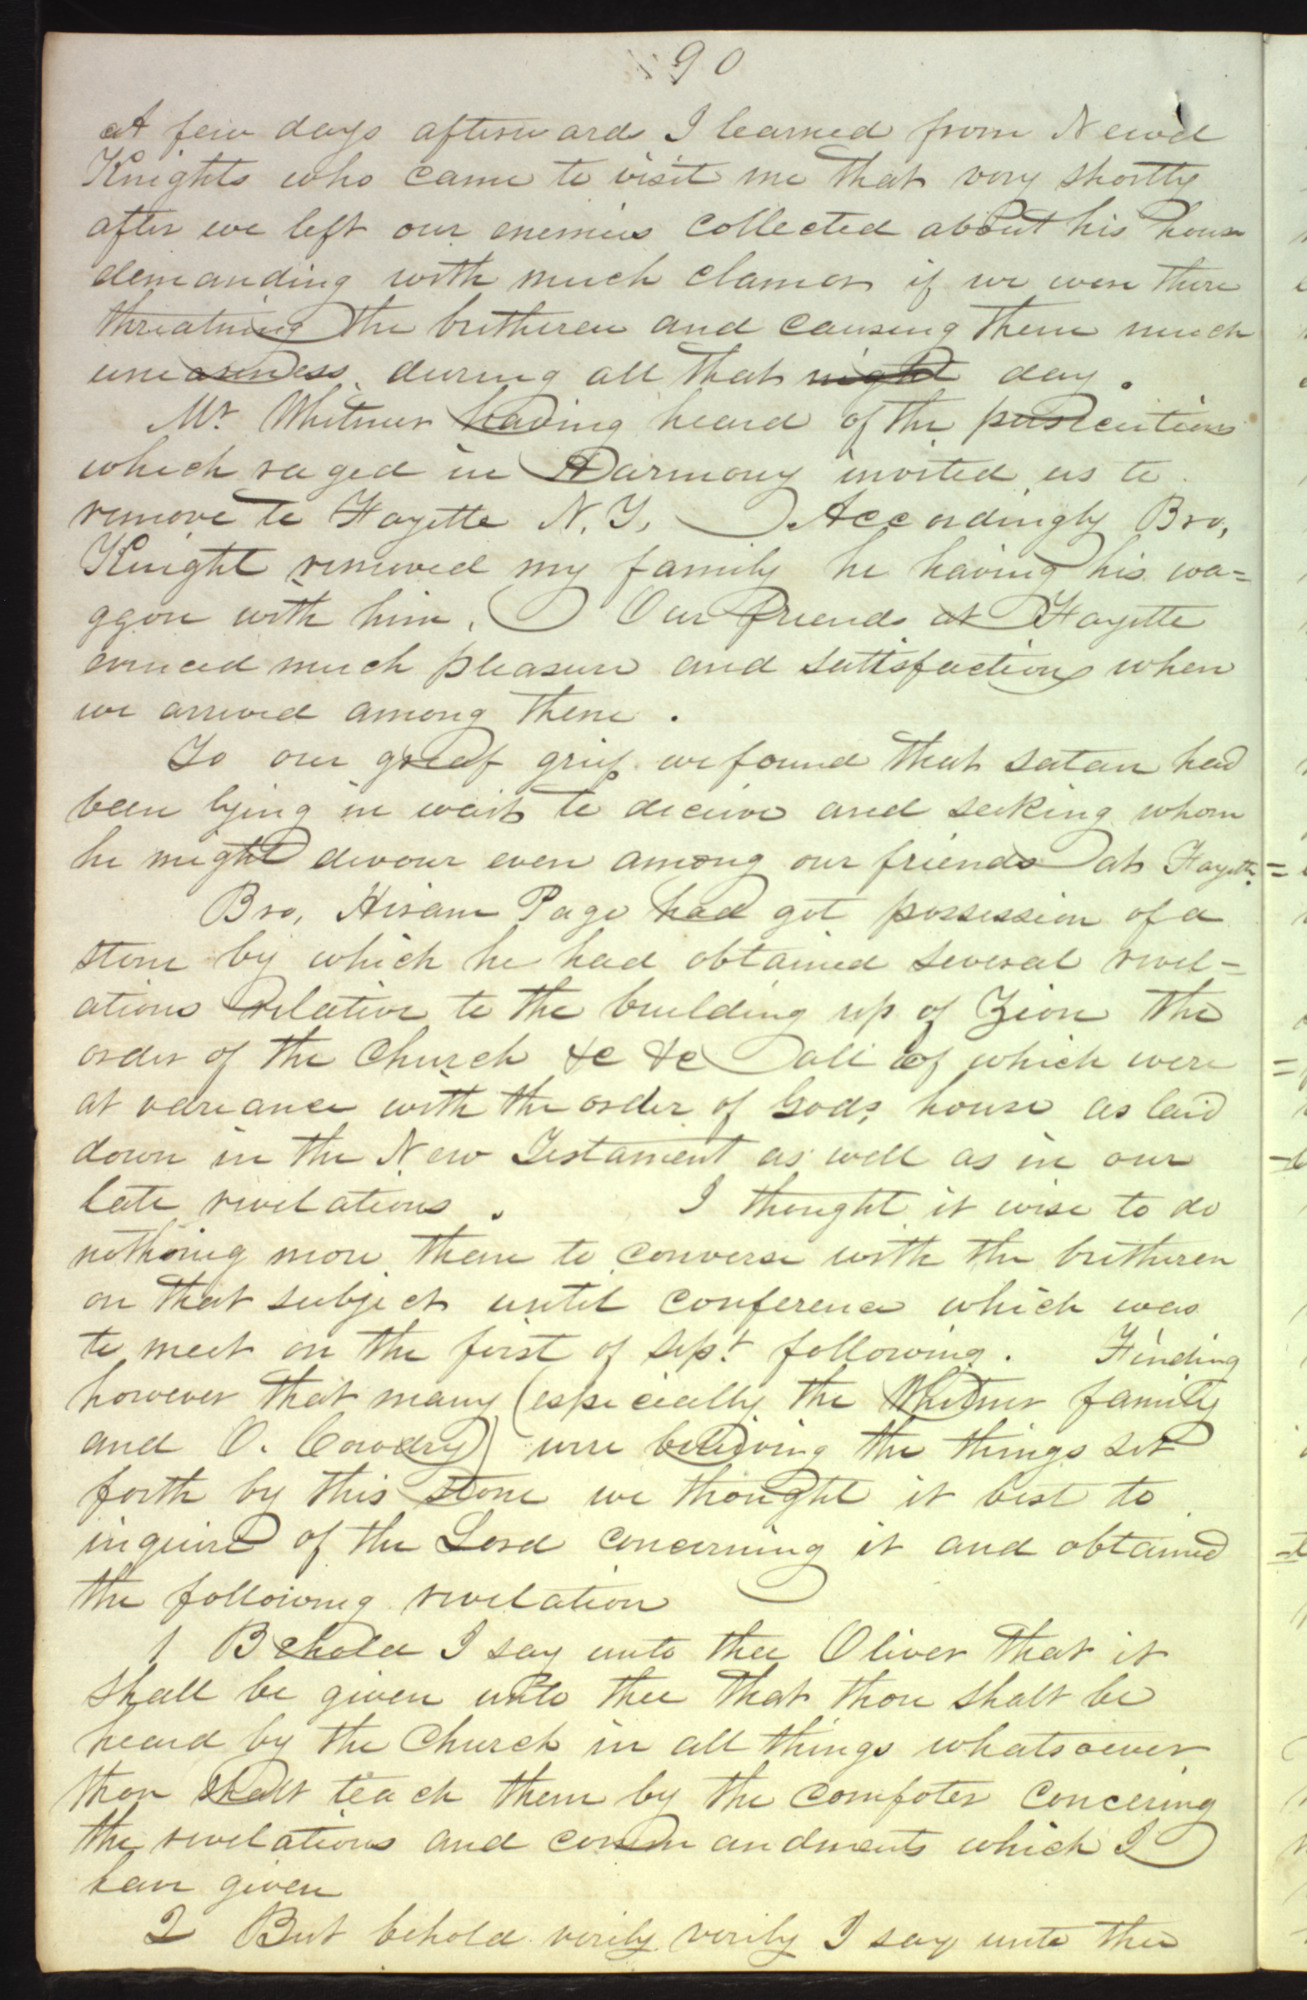 90
A few days afterwards I learned from Newel
Knights who came to visit me that very shortly
after we left our enemies collected about his house
demanding with much clamor if we were there
threatning the bretheren and causing them much
uneasiness during all that night day.
Mr Whitmer having heard of the persecutions
which raged in Harmony invited us to
remove to Fayette N.Y. Accordingly Bro,
Knight removed my family he having his wa=
ggon with him. Our friends at Fayette
evinced much pleasure and sattisfaction when
we arrived among them.
To our great grief we found that satan had
been lying in wait to decieve and seeking whom
he might devour even among our friends at Fayette.
Bro, Hiram Page had got possession of a
stone by which he had obtained several revel=
ations relative to the building up of Zion the
order of the Church &c &c all of which were
at variance with the order of Gods house as laid
down in the New Testament as well as in our
late revelations. I thought it wise to do
nothing more than to converse with the bretheren
on that subject until conference which was
to meet on the first of sept following. Finding
however that many (especially the Whitmer family
and O. Cowdry) were believing the things set
forth by this stone we thought it best to
inquire of the Lord concerning it and obtained
the following revelation
1 Behold I say unto thee Oliver that it
shall be given unto thee that thou shalt be
heard by the Church in all things whatsoever
thou shalt teach them by the comfoter concering
the revelations and commandments which I
have given
2 But behold verily verily I say unto thee